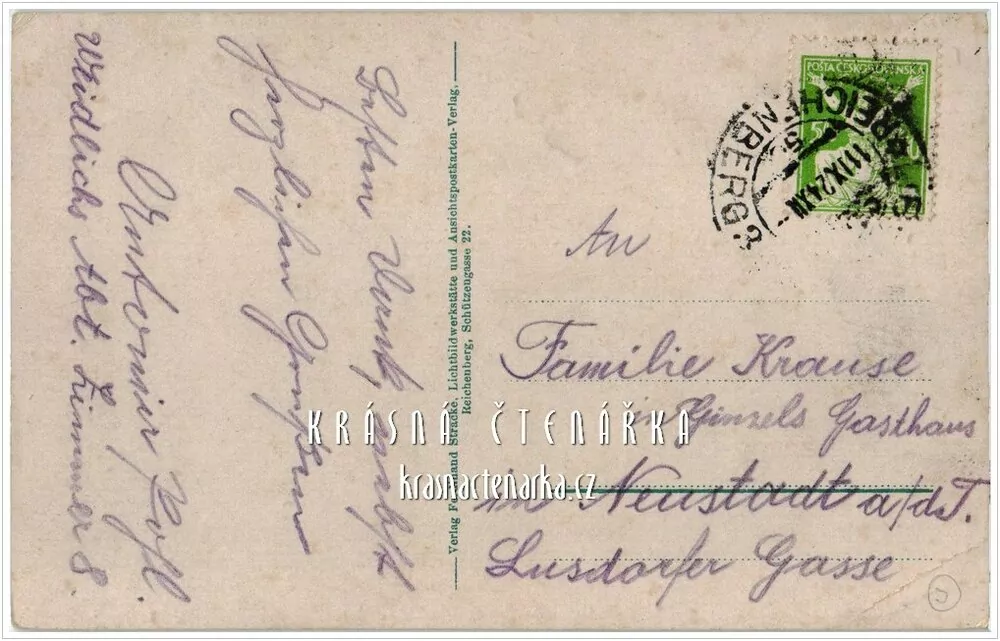 Besten Dank, nebst
herzlichen Grüssen
Weidlichs Abt. Zimmer 8
Verlag Ferdinand Stracke, Lichtbildwerkstätte und Ansichtspostkarten-Verlag,
Reichenberg, Schützengasse 22.
POŠTA ČESKOSLOVENSKÁ
REICHENBERG
An
Familie Krause
in Ginzels Gasthaus
in Neustadt a/d. T.
Lusdorfer Gasse
KRÁSNÁ ČTENÁŘKA
krasnactenarka.cz